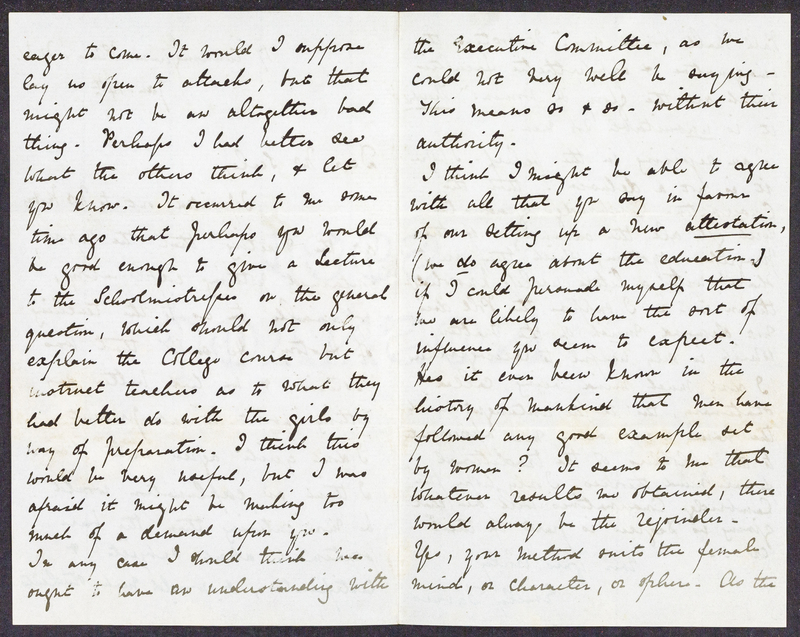 eager to come. It would I suppose
lay us open to attacks, but that
might not be an altogether bad
thing. Perhaps I had better see
what the others think, & let
you know. It occurred to me some
time ago that perhaps you would
be good enough to give a Lecture
to the Schoolmistresses on the general
question, which should not only
explain the College course but
instruct teachers as to what they
had better do with the girls by
way of preparation. I think this
would be very useful, but I was
afraid it might be making too
much of a demand upon you.
In any case I should think we
ought to have an understanding with
the Executive Committee, as we
could not very well be saying -
This means so & so - without their
authority.
I think I might be able to agree
with all that you say in favour
of our setting up a new attestation,
(we do agree about the education)
if I could persuade myself that
we are likely to have the sort of
influence you seem to expect.
Has it ever been known in the
history of mankind that men have
followed any good example set
by women? It seems to me that
whatever results we obtained, there
would always be the rejoinder -
Yes, your method suits the female
mind, or character, or sphere. As the